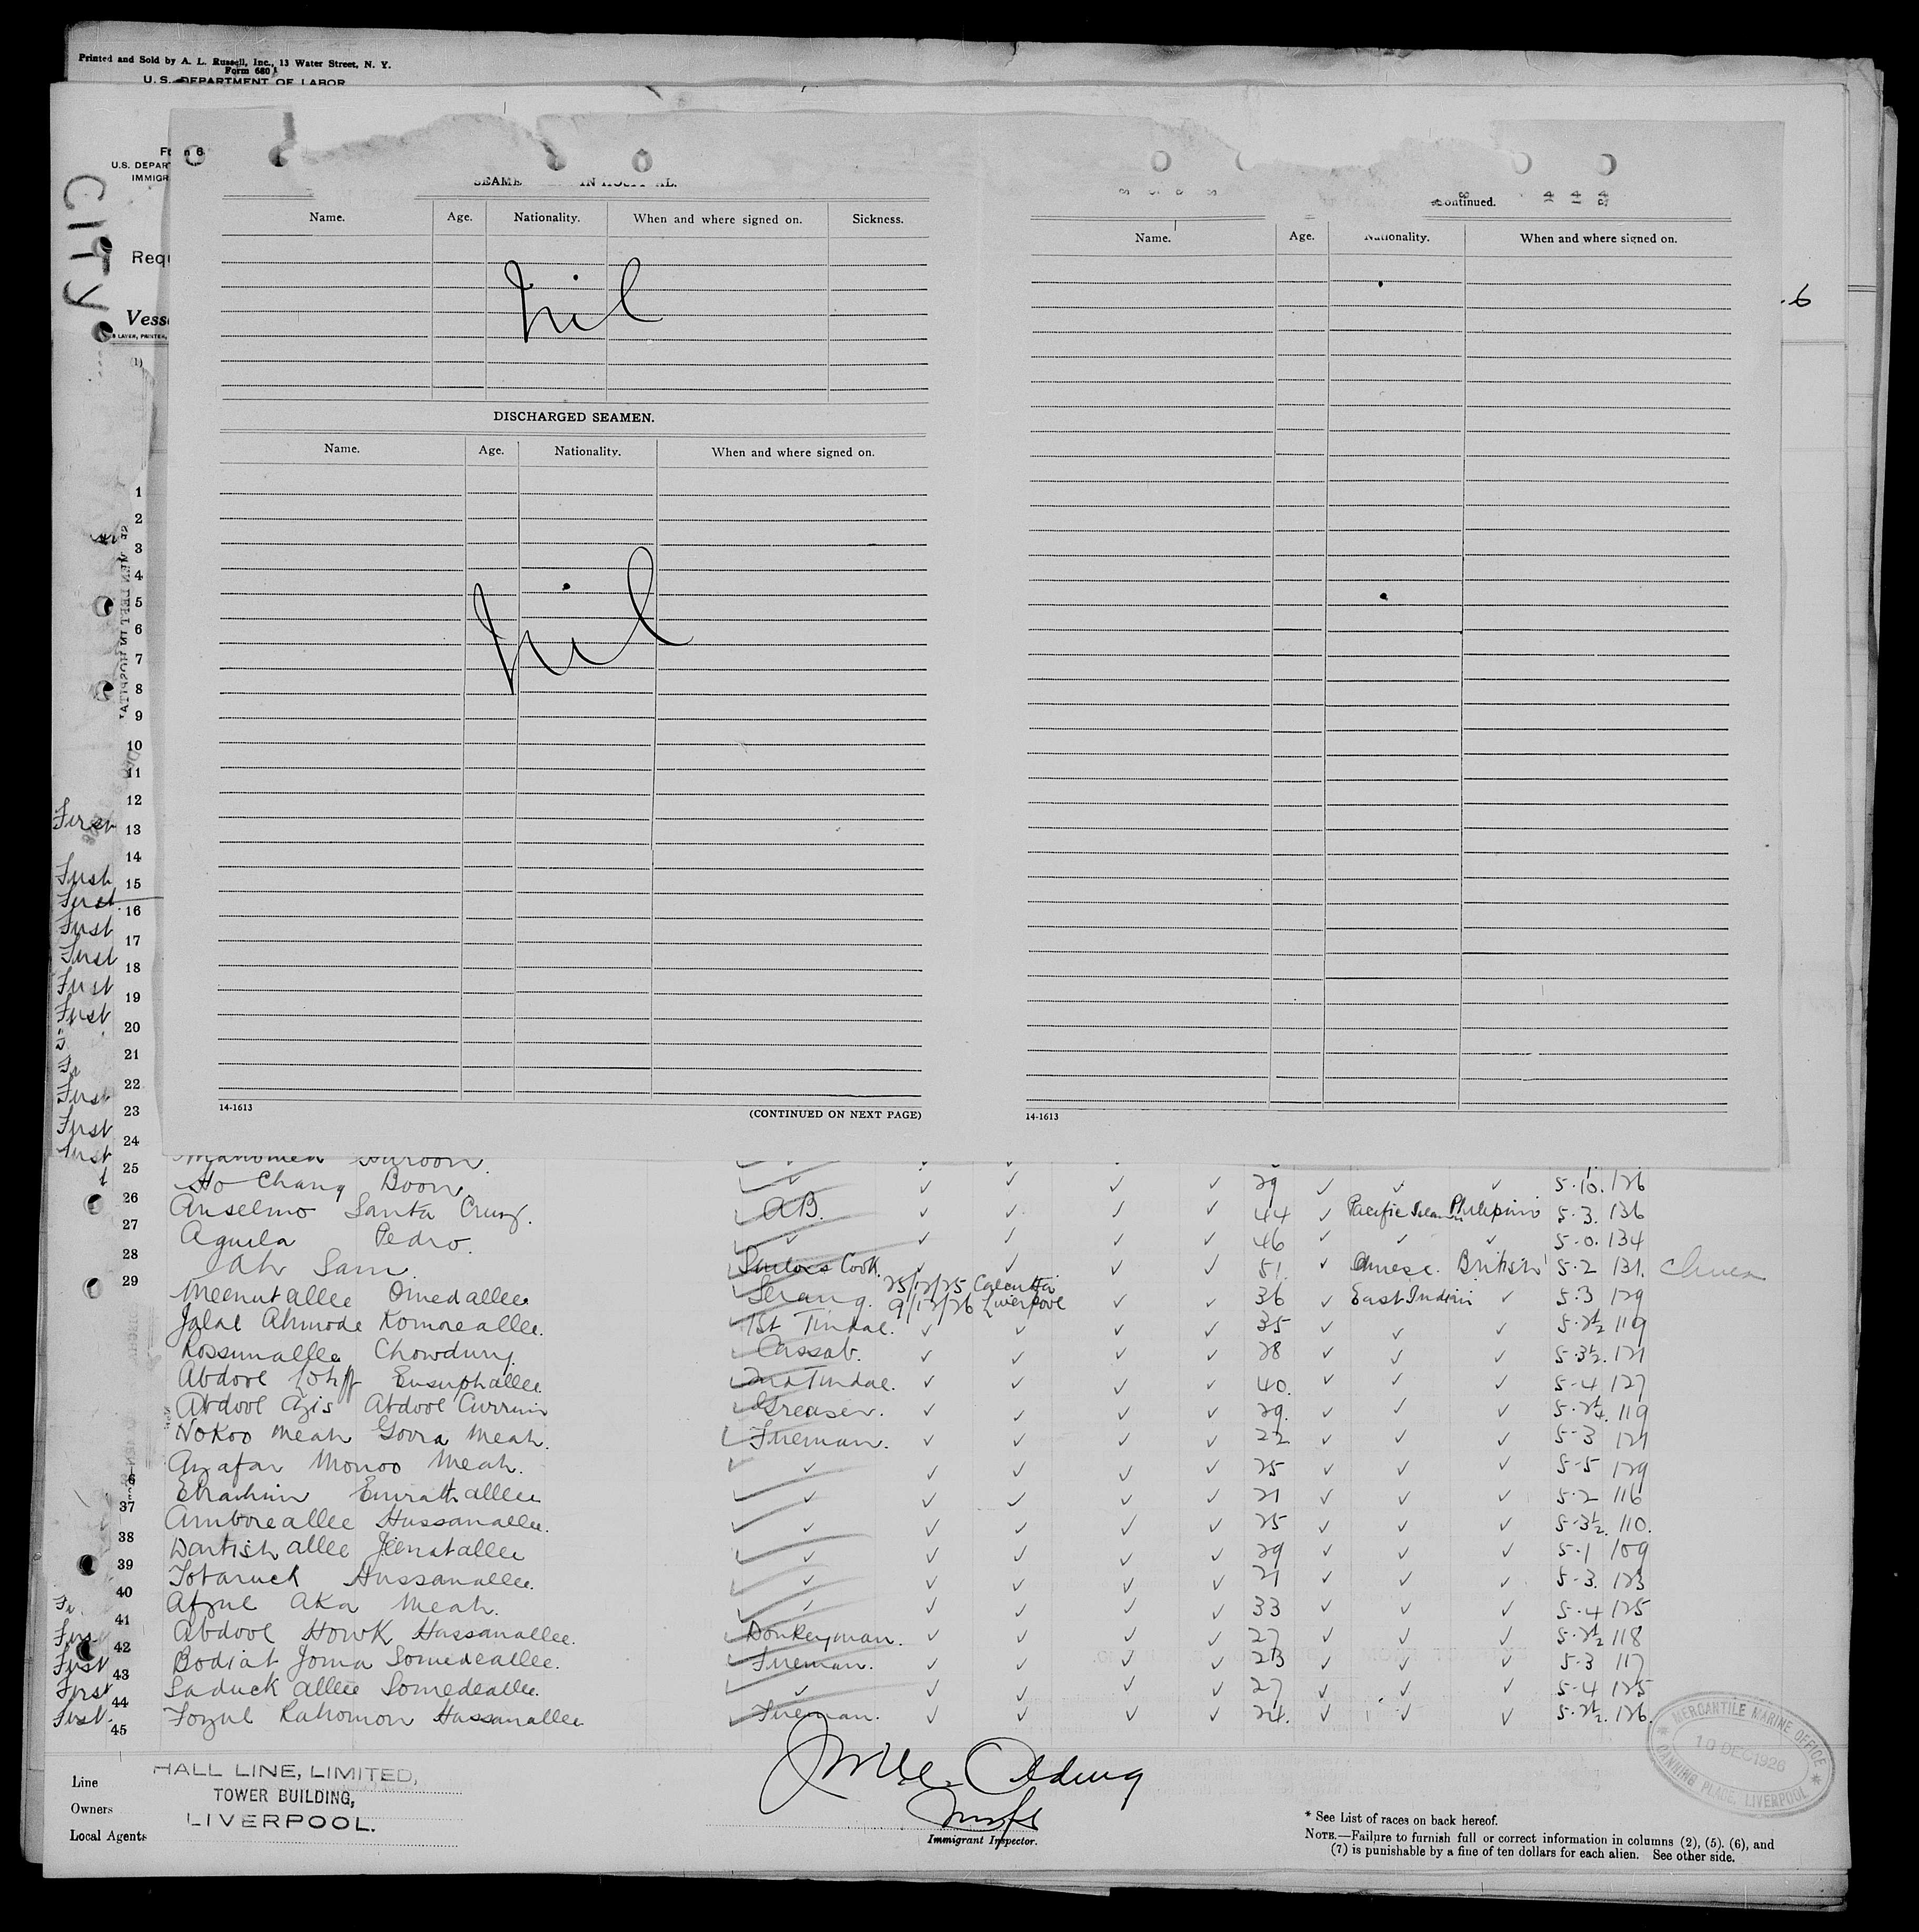 Printed and Sold by A. L. Russell, Inc., 13 Water Street, N. Y.
Form 680
U. S. DEPARTMENT OF LABOR
U.S. DEPAR
IMMIGR
CITY
Requ
Vess
SEAME IN HOSPITAL.
Name. Age. Nationality. When and where signed on. Sickness.
Nil
DISCHARGED SEAMEN.
Name. Age. Nationality. When and where signed on.
Nil
14-1613 (CONTINUED ON NEXT PAGE)
Continued.
Name. Age. Nationality. When and where signed on.
14-1613
1
2
3
4
5
6
7
8
9
10
11
12
First 13
14
First 15
First 16
First 17
First 18
First 19
First 20
21
22
First 23
First 24
25 Mahomed Haroon.
26 Ho Chang Boon ✓ ✓ ✓ ✓ 29 ✓ ✓ ✓ 5.10. 126
27 Anselmo Santa Cruz. ✓ A.B. ✓ ✓ ✓ ✓ 44 ✓ Pacific Philipino 5.3. 136
28 Aguila Pedro. ✓ ✓ ✓ ✓ ✓ ✓ 46 ✓ ✓ ✓ 5-0. 134
29 Ah Sam. Cook. ✓ ✓ ✓ ✓ 51. ✓ Chinese. British 5.2 131. China
Meenutallee Omedallee ✓ Serang. 25/12/25 Calcutta 9/12/26 Liverpool ✓ ✓ 36 ✓ East Indian ✓ 5.3 129
Jalal Ahmode Komoreallee. ✓ 1st Tindal. ✓ ✓ ✓ ✓ 35 ✓ ✓ ✓ 5.2½ 119
Rossumallee Chowdury. ✓ Cassab. ✓ ✓ ✓ ✓ 28 ✓ ✓ ✓ 5.3½. 121
Abdool Eusuphallee. ✓ 2nd Tindal. ✓ ✓ ✓ ✓ 40. ✓ ✓ ✓ 5-4 127
Abdool Azis Abdool Currim ✓ Greaser. ✓ ✓ ✓ ✓ 29. ✓ ✓ ✓ 5-2¼. 119
Nokoo Meah Goura Meah. ✓ Fireman. ✓ ✓ ✓ ✓ 22 ✓ ✓ ✓ 5-3 121
Azafar Monoo Meah. ✓ ✓ ✓ ✓ ✓ ✓ 25 ✓ ✓ ✓ 5-5 129
37 Ebrahim Emrathallee ✓ ✓ ✓ ✓ ✓ ✓ 21 ✓ ✓ ✓ 5.2 116
38 Amboreallee Hussanallee. ✓ ✓ ✓ ✓ ✓ ✓ 25 ✓ ✓ ✓ 5-3½. 110.
39 allee Jeenatallee ✓ ✓ ✓ ✓ ✓ ✓ 29 ✓ ✓ ✓ 5.1 109
40 Tobaruck Hussanallee. ✓ ✓ ✓ ✓ ✓ ✓ 21 ✓ ✓ ✓ 5-3. 123
41 Afzul Aka Meah. ✓ ✓ ✓ ✓ ✓ ✓ 33 ✓ ✓ ✓ 5.4 125
First 42 Abdool Howk Hassanallee. ✓ Donkeyman. ✓ ✓ ✓ ✓ 27 ✓ ✓ ✓ 5.2½ 118
First 43 Bodiat Joma Somedeallee. ✓ Fireman. ✓ ✓ ✓ ✓ 23 ✓ ✓ ✓ 5.3 117
First 44 Saduck allee Somedeallee. ✓ ✓ ✓ ✓ ✓ ✓ 27 ✓ ✓ ✓ 5-4 125
First 45 Fozul Rahomon Hassanallee ✓ Fireman. ✓ ✓ ✓ ✓ 24. ✓ ✓ ✓ 5.2½. 126.
MERCANTILE MARINE OFFICE
10 DEC 1926
CANNING PLACE, LIVERPOOL
Line HALL LINE, LIMITED,
Owners TOWER BUILDING,
Local Agents LIVERPOOL.
Immigrant Inspector.
* See List of races on back hereof.
NOTE.—Failure to furnish full or correct information in columns (2), (5), (6), and
(7) is punishable by a fine of ten dollars for each alien. See other side.